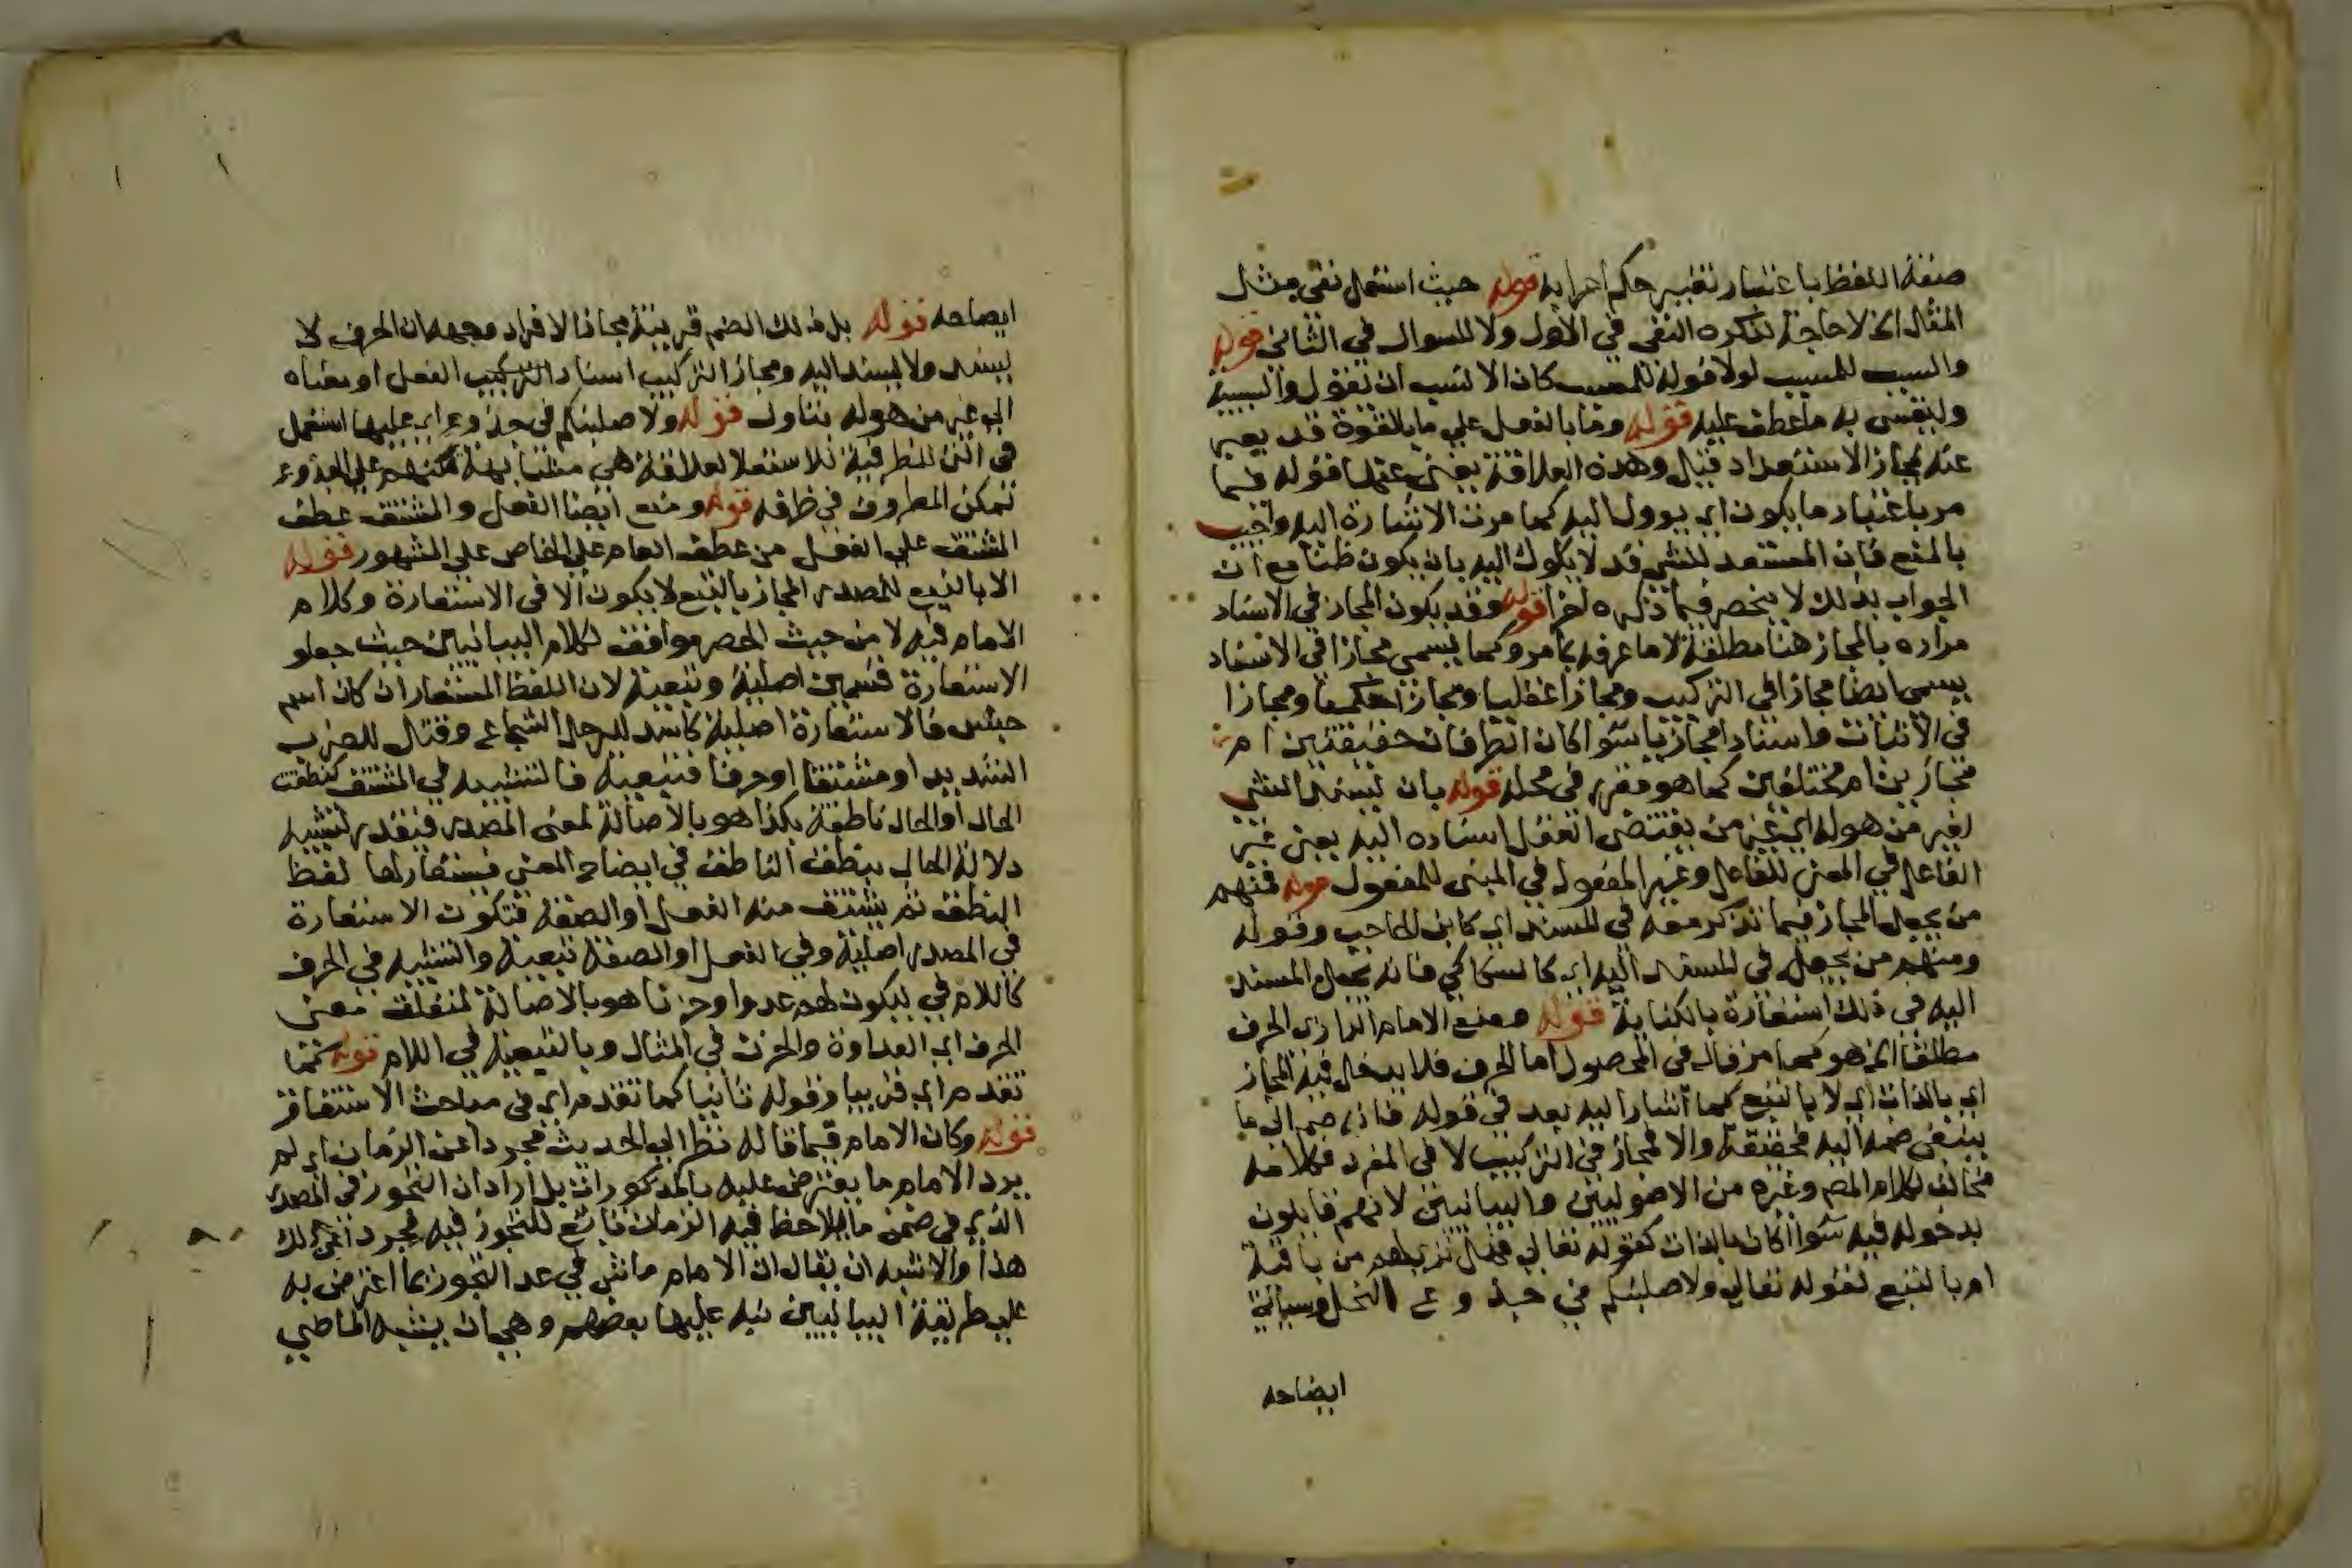 صفة اللفظ باعتبار تغيير حكم اعرابه قوله حيث استعمل نفي مثل
المثل الخ لا حاجة لذكره النفي في الاول ولا للسوال في الثاني قوله
والسبب للمسبب لولا قوله للمسبب كان الانسب ان تقول والسببية
وليقس به ما عطف عليه قوله وما بالفعل علي ما بالقوة قد يعبر
عنه بمجاز الاستعداد قيل وهذه العلاقة يغني عنها قوله فيما
مر باعتبار ما يكون اي يوول اليه كما مرت الاشارة اليه واجيب
بالمنع فان المستعد للشي قد لا يكول اليه بان يكون ظنا مع ان
الجواب بذلك لا ينحصر فيما ذكره اخرا قوله وقد يكون المجاز في الاسناد
مراده بالمجاز هنا مطلقه لا ما عرفه بما مر وكما يسمي مجازا في الاسناد
يسمي ايضا مجازا في التركيب ومجازا عقليا ومجازا حكميا ومجازا
في الاثبات واسنادا مجازيا سوا كان الطرفان حقيقتين ام
مجازين ام مختلفين كما هو مقرر في محله قوله بان يسند الشي
لغير من هو له اي غير من يقتضي العقل اسناده اليه يعني غير
الفاعل في المعني للفاعل وغير المفعول في المبني للمفعول قوله فمنهم
من يجعل المجاز فيما تذكر معه في المسند اي كابن الحاجب وقوله
ومنهم من يجعله في المسند اليه اي كالسكاكي فانه يجعل المسند
اليه في ذلك استعارة بالكناية قوله ومنع الامام الرازي الحرف
مطلقا الخ هو كما مر قال في المحصول اما الحرف فلا يدخل فيه المجاز
اي بالذات اي لا بالتبع كما اشار اليه بعد في قوله فان ضم الي ما
ينبغي ضمه اليه فحقيقة والا فمجاز في التركيب لا في المفرد فكلامه
مخالف لكلام المص وغيره من الاصوليين والبيانيين لانهم قايلون
بدخوله فيه سوا اكان بالذات كقوله تعالي فهل تري لهم من باقية
ام بالتبع لقوله تعالي ولاصلبنكم في جذوع النخل وسياتي
ايضاحه
ايضاحه قوله بل ذلك الضم قرينة مجاز الافراد وجهه ان الحرف لا
يسند ولا يسند اليه ومجاز التركيب اسناد التركيب الفعل او معناه
الي غير من هو له بتاول قوله ولاصلبنكم في جذوع اي عليها استعمل
في التي للظرفية للاستعلا لعلاقة هي مشابهة تمكنهم علي الجذوع
تمكن المظروف في ظرفه قوله ومنع ايضا الفعل والمشتق عطف
المشتق علي الفعل من عطف العام علي الخاص علي المشهور قوله
الا بالتبع للمصدر المجاز بالتبع لا يكون الا في الاستعارة وكلام
الامام فيه لا من حيث الحصر موافق لكلام البيانيين حيث جعلو
الاستعارة قسمين اصلية وتبعية لان اللفظ المستعار ان كان اسم
جنس فالاستعارة اصلية كاسد للرجل الشجاع وقتال للضرب
الشديد او مشتقا او حرفا فتبعية فالتشبيه في المشتق كنطقت
الحال او الحال ناطقة بكذا هو بالاصالة لمعني المصدر فيقدر تشبيه
دلالة الحال بنطق الناطق في ايضاح المعني فيستعار لها لفظ
النطق ثم يشتق منه الفعل او الصفة فتكون الاستعارة
في المصدر اصلية وفي الفعل او الصفة تبعية والتشبيه في الحرف
كاللام في ليكون لهم عدوا وحزنا هو بالاصالة لمتعلق معني
الحرف اي العداوة والحزن في المثال وبالتبعية في اللام قوله كما
تقدم اي قريبا وقوله ثانيا كما تقدم اي في مباحث الاشتقاق
قوله وكان الامام فيما قاله نظر الي الحديث مجردا عن الزمان اي لم
يرد الامام ما يعترض عليه بالمذكورات بل اراد ان التجوز في المصدر
الذي في ضمن ما يلاحظ فيه الزمان تابع للتجوز فيه مجردا عن ذلك
هذا والاشبه ان يقال ان الامام ماش في عد التجوز بما اعترض به
علي طريقة البيانيين نبه عليها بعضهم وهي ان يشبه الماضي